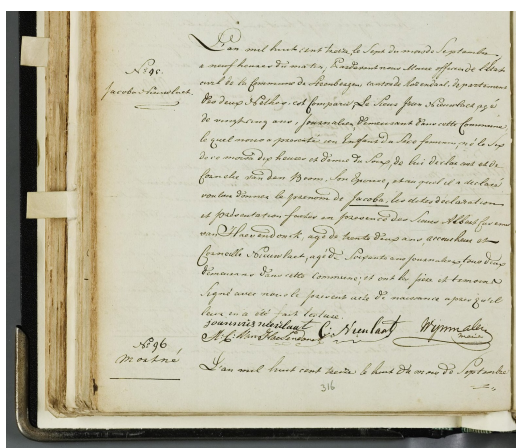 L'an mil huit cent treize le Sept du mois de Septembre
a neuf heures du matin, Pardevant nous Maire officier de l'état
civil de la Commune de Steenbergen, canton de Rosendal, departement
des deux Nethes, est Comparu, le Sieur Jean Nieuwlaet agé
de vingt cinq ans, Journalier, demeurant dans cette Commune,
le quel nous a presenté un Enfant du Sexe feminin, né le Sept
de ce mois a dix heures et demie du Soir, de lui declarant et de
Cornelie van den Boom, Son Epouse, et au quel il a declaré
vouloir donner le prenom de Jacoba, les dites declaration
et presentation faites en presence des Sieurs Albert
van Haevendonck, agé de trente deux ans accoucheur et
Corneille Nieuwlaet, agé de Soixante ans Journalier, tous deux
demeurant dans cette commune; et ont les père et temoins
Signé avec nous le present acte de naissance apres qu'il
leur en a été fait lecture.
N.°
Jacoba Nieuwlaet.
C. Nieulaet
Wijnmalen
Maire
N.° 96
mort né
L'an mil huit cent treize le huit du mois de Septembre
316